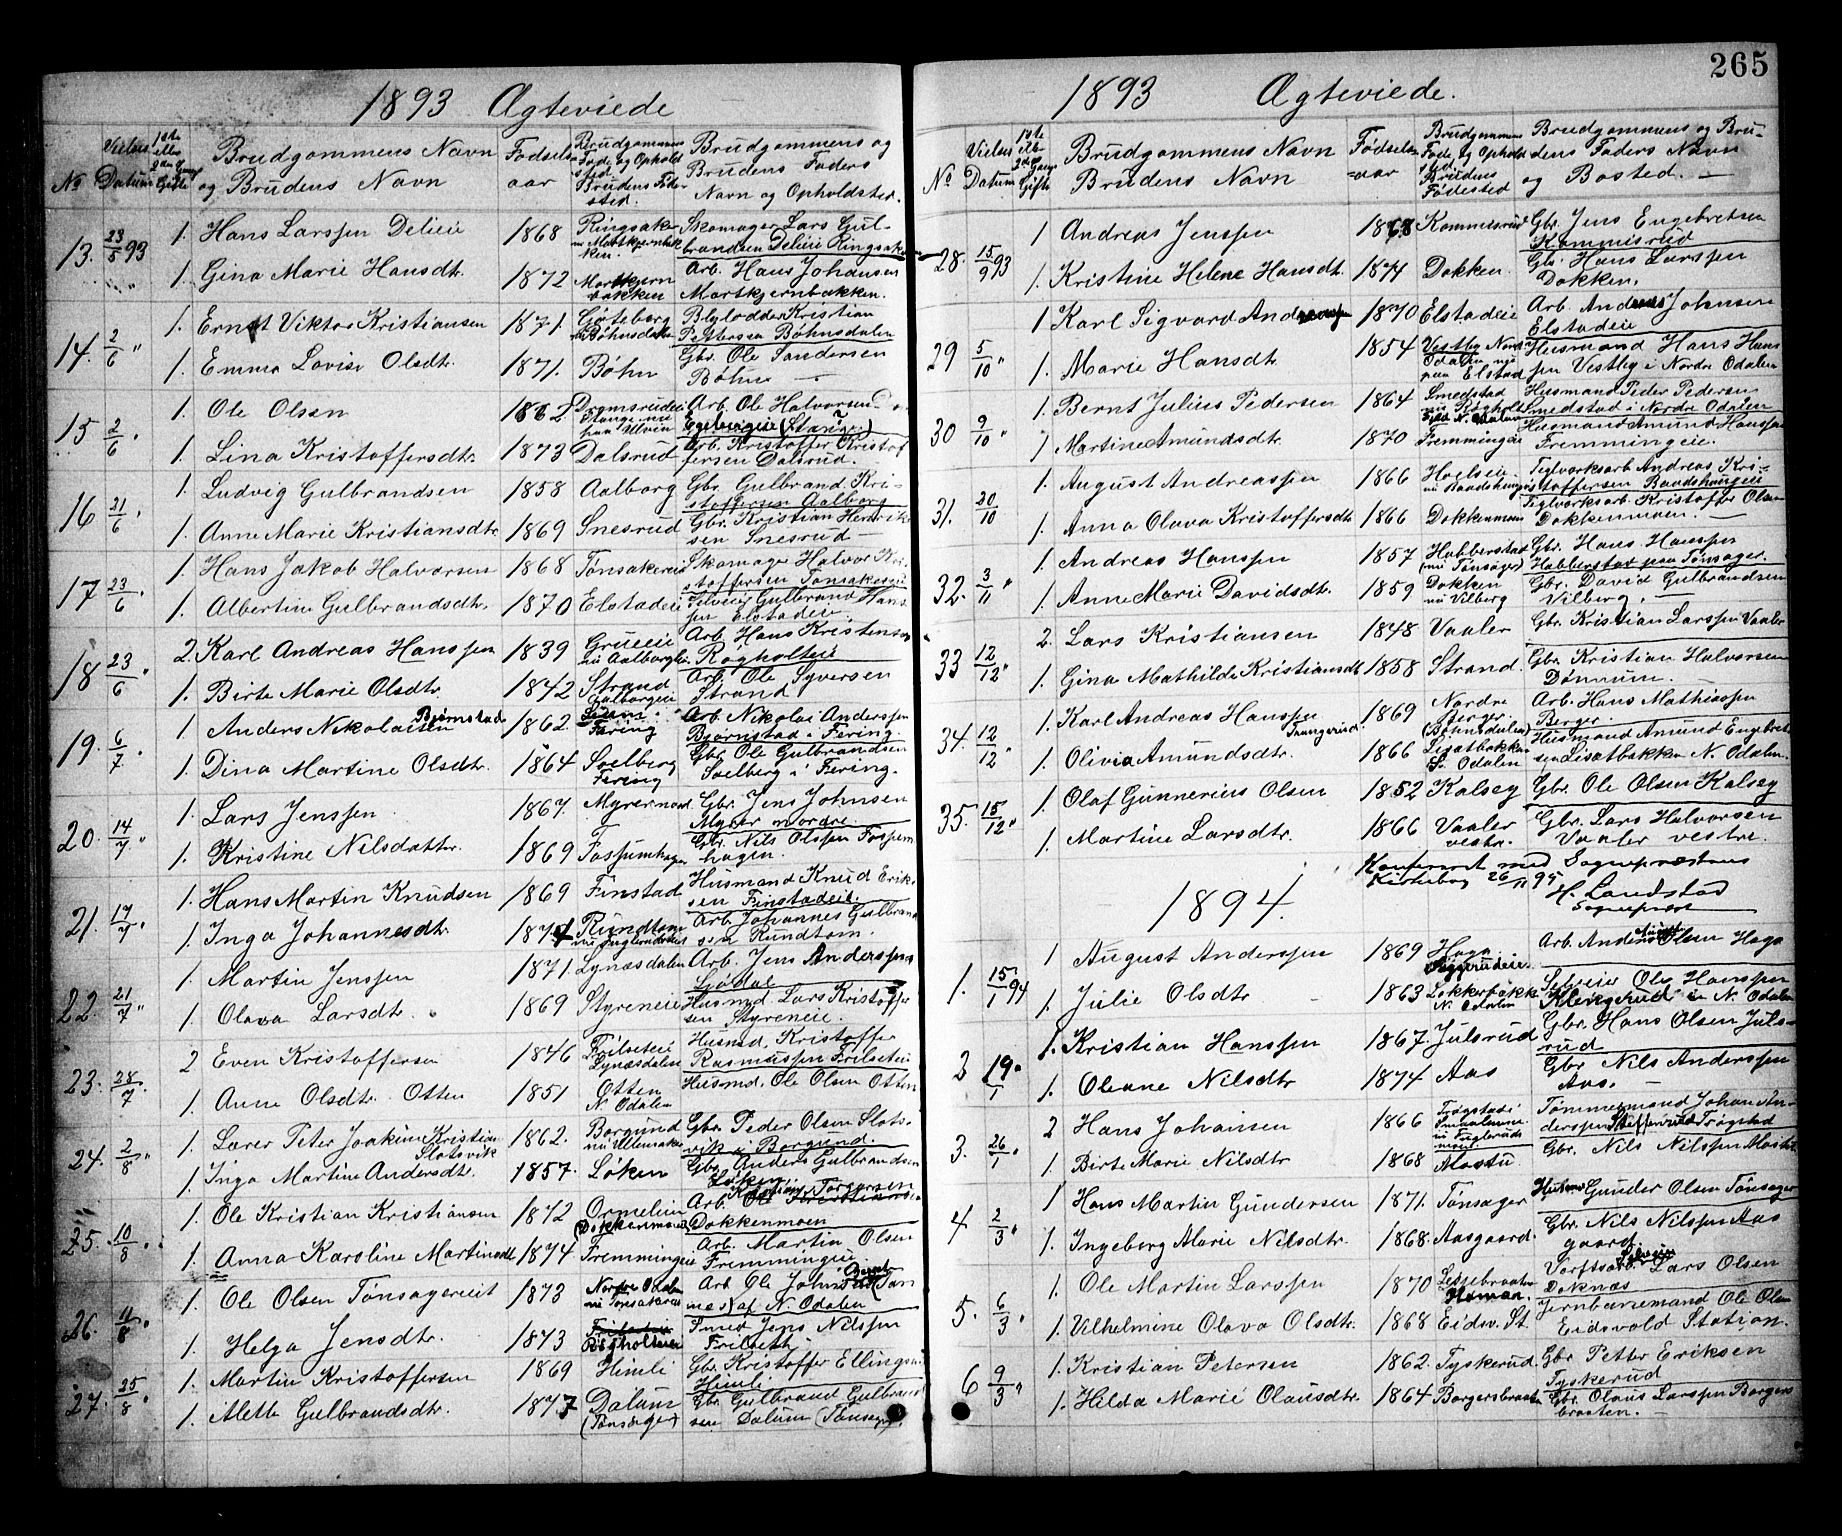 265
1893 Ægteviede
No Vielses Datum 1ste eller gang Gifte Brudgommens Navn og Brudens Navn Fødsels aar Brudgommens Føde og Opholdsted Brudens Fødested. Brudgommens og Brudens Faders Navn og Opholdsted.
13. 23/5 93 1. Hans Larssen Delieie 1868 Ringsaker Skomager Lars Gulbrandsen Delieie Ringsaker
1. Gina Marie Hansdtr. 1872 Mortkjernbakken Arb. Hans Johansen Mortkjernbakken.
14. 2/6 " 1. Ernst Viktor Kristiansen 1871. Gøteborg nu Bøhnsdalen Kristian Pettersen Bøhnsdalen
1. Emma Lovise Olsdtr. 1871. Bøhn Gbr. Ole Sandersen Bøhn —
15 2/6 " 1. Ole Olsen 1862 Arb. Ole Halvorsen
1. Lina Kristoffersdtr. 1873 Dalsrud Arb. Kristoffer Kristoffersen Dalsrud.
16 21/6 " 1. Ludvig Gulbrandsen 1858 Aalborg Gbr. Gulbrand Kristoffersen Aalborg
1. Anne Marie Kristiansdtr. 1869 Snesrud Gbr. Kristian Henriksen Snesrud —
17 23/6 " 1. Hans Jakob Halvorsen 1868 Tønsakereie Skomager Halvor Kristoffersen Tønsakereie
1. Albertine Gulbrandsdtr. 1870 Elstadeie Gulbrand Hanssen Elstadeie
18 23/6 " 2. Karl Andreas Hanssen 1839 Grueeie nu Aalborgeie Arb. Hans Kristensen Røgholteie
1. Birte Marie Olsdtr. 1842 Strand Aalborgeie Arb. Ole Syversen Strand
19. 6/7 " 1. Anders Nikolaisen Bjørnstad 1862. Fering Arb. Nikolai Anderssen Bjørnstad i Fering
1. Dina Martine Olsdtr. 1864 Solberg Fering Gbr. Ole Gulbrandsen Solberg i Fering.
20. 14/7 " 1. Lars Jenssen 1867. Myrer nord Gbr. Jens Johnsen Myrer nordre.
1. Kristine Nilsdatter. 1869 Fossumhagen Gbr. Nils Olssen Fossumhagen.
21. 17/7 " 1. Hans Martin Knudsen 1869 Finstad Husmand Knud Eriksen Finstadeie.
1. Inga Johannesdtr. 1874 Rundtom Arb. Johannes Gulbrandsen Rundtom.
22. 21/7 " 1. Martin Jenssen 1871. Lynæsdalen Arb. Jens Anderssen
1. Olava Larsdtr. 1869 Styreneie Husmd. Lars Kristoffersen Styreneie.
23. 28/7 " 2 Even Kristoffersen 1846 Frilseteie Lynæsdalen Husmd. Kristoffer Rasmussen Frilseteie
1. Anne Olsdtr. Otten 1851 Otten N. Odalen Husmd. Ole Olsen Otten
24. 2/8 " 1. Lærer Peter Joakim Kristian Slotsvik 1862. Borgund nu Ullensaker Gbr. Peder Olsen Slotsvik i Borgund.
1. Inga Martine Andersdtr. 1857. Løken Gbr. Anders Gulbrandsen Løken
25. 10/8 " 1. Ole Kristian Kristiansen 1872 Ormelien (Dokkenmoen) Arb. Kristian Torgersen Dokkenmoen
1. Anna Karoline Martinsdtr 1874 Fremmingeie Arb. Martin Olsen Fremmingeie
26. 11/8 " 1. Ole Olsen Tønsagereiet 1873 Nordre Odalen nu Tønsakereie Arb. Ole Johnsen af N. Odalen
1. Helga Jensdtr. 1873 Røgholteie Smed Jens Nilssen Frilseth
27. 25/8 " 1. Martin Kristoffersen 1869 Himli Gbr. Kristoffer Ellingsen Himli
1. Alette Gulbrandsdtr. 1877 Dalum (Tønsager) Gbr. Gulbrand Gulbrandsen Dalum (Tønsager)
1893 Ægteviede.
No Vielses Datum 1ste eller 2den Gang Gifte Brudgommens Navn Brudens Navn Fødselsaar Brudgommens Føde og Opholdsted Brudens Fødested Brudgommens og Brudens Faders Navn og Bosted. —
28. 15/9 93 1. Andreas Jenssen 1868 Kommisrud Gbr. Jens Engebretsen Kommisrud
1. Kristine Helene Hansdtr. 1874 Dokken Gbr. Hans Larssen Dokken.
29 5/10 " 1 Karl Sigvard Anderssen 1870 Elstadeie Arb. Andreas Johnsen Elstadeie
1. Marie Hansdtr 1854 Vestby Nordre Odalen nu paa Elstad Husmand Hans Hanssen Vestby i Nordre Odalen
30 9/10 " 1. Bernt Julius Pedersen 1864 Smedstad Husmand Peder Pedersen Smedstad i Nordre Odalen
1 Martine Amundsdtr. 1870 Fremmingeie Husmand Amund Hanssen Fremmingeie.
31. 20/10 1. August Andreassen 1866 Hoelseie nu Baadshaugen Teglværksarb. Andreas Kristoffersen Baadshaugeie
1. Anna Olava Kristoffersdtr 1866 Dokkenmoen Teglværksarb. Kristoffer Olsen Dokkenmoen. —
32. 3/11 " 1. Andreas Hanssen 1857 Habberstad (nu Tønsager) Gbr. Hans Hanssen Habberstad paa Tønsager.
1. Anne Marie Davidsdtr. 1859 Dokken nu Vilberg Gbr. David Gulbrandsen Vilberg. —
33 12/12 " 2. Lars Kristiansen 1848 Vaaler Gbr. Kristian Larssen Vaaler
1. Gina Mathilde Kristiansdtr 1858 Strand. Gbr. Kristian Halvorsen Dønnum.
34. 12/12 " 1. Karl Andreas Hanssen Trungerud 1869 Nordre Berger. (Bøhnsdalen) Arb. Hans Mathissen Berger.
1. Olivia Amundsdtr. 1866 Lisætbakken S. Odalen Husmand Amund Engebretsen Lisætbakken N. Odalen.
35. 15/12 " 1. Olaf Gunnerius Olsen 1852 Kalsey Gbr. Ole Olsen Kalsey
1. Martine Larsdtr. 1866 Vaaler vestre. Gbr. Lars Halvorsen Vaaler vestre.
Konferert med Sognepræstens Kirkebog 26/11 95
H. Landstad
Sognepræst
1894.
1. 15/1 94 1 August Anderssen 1869 Haga Arb. Anders Olsen Haga
1. Julie Olsdtr 1863 N. Odalen Ole Hanssen Klingerud i N. Odalen
2 19/1 " 1. Kristian Hanssen 1867 Julsrud Gbr. Hans Olsen Julsrud
1. Oleane Nilsdtr 1874 Aas Gbr. Nils Anderssen Aas. —
3. 26/1 " 2 Hans Johansen 1866 Trøgstad Tømmermand Johan Anderssen Trøgstad
1. Birte Marie Nilsdtr 1868 Mostu Gbr. Nils Nilssen Mostu
4 2/3 " 1. Hans Martin Gundersen 1871. Tønsager Gunder Olsen Tønsager
1. Ingeborg Marie Nilsdtr. 1868. Aasgaard. Gbr. Nils Nilssen Aasgaard
5. 6/3 " 1. Ole Martin Larssen 1870 Lars Olsen Doknæs
1. Vilhelmine Olava Olsdtr 1868 Eidsv. St. Jernbanemand Ole Olsen Eidsvold Station.
6 9/3 " 1. Kristian Petersen 1862. Tyskerud. Gbr Petter Eriksen Tyskerud
1. Hilda Marie Olausdtr. 1864 Borgersbraaten Gbr. Olaus Larssen Borgersbraaten. —